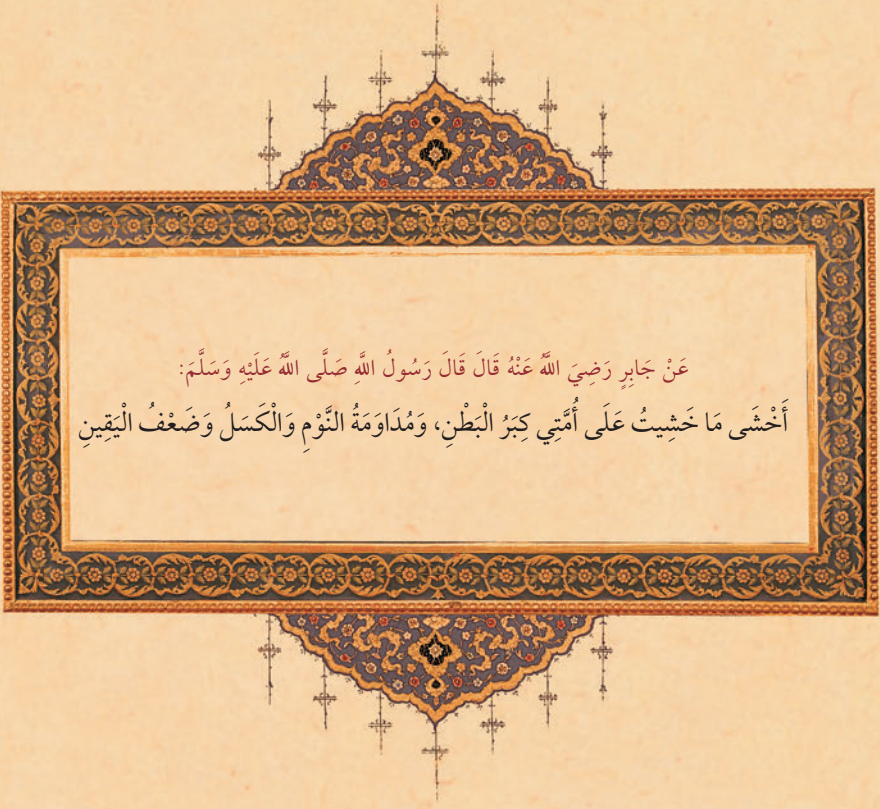 عَنْ جَابِرٍ رَضِيَ اللَّهُ عَنْهُ قَالَ قَالَ رَسُولُ اللَّهِ صَلَّى اللَّهُ عَلَيْهِ وَسَلَّمَ:
أَخْشَى مَا خَشِيتُ عَلَى أُمَّتِي كِبَرُ الْبَطْنِ، وَمُدَاوَمَةُ النَّوْمِ وَالْكَسَلُ وَضَعْفُ الْيَقِينِ